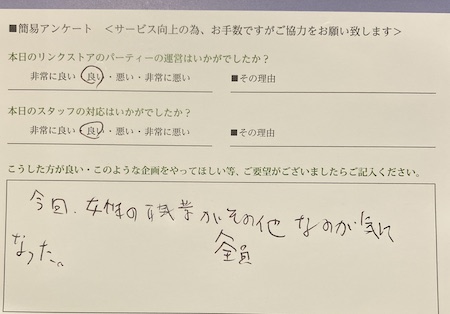 ■簡易アンケート ＜サービス向上の為、お手数ですがご協力をお願い致します＞
本日のリンクストアのパーティーの運営はいかがでしたか？
非常に良い・良い・悪い・非常に悪い ■その理由
本日のスタッフの対応はいかがでしたか？
非常に良い・良い・悪い・非常に悪い ■その理由
こうした方が良い・このような企画をやってほしい等、ご要望がございましたらご記入ください。
今回、女性の職業がその他なのが気に
全員
なった。